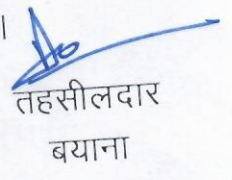 ।
तहसीलदार
बयाना